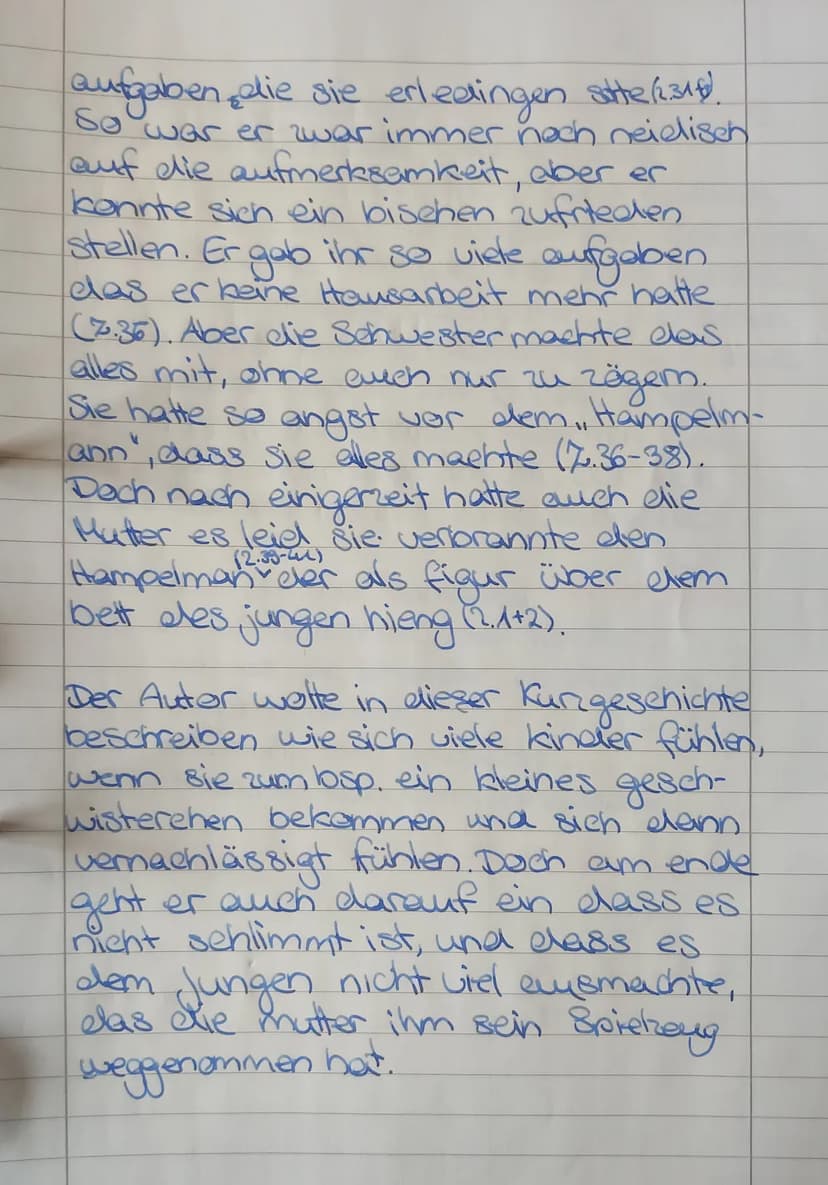 aufgaben, die sie erledingen sotte (z.31f).
So war er zwar immer noch neidisch
auf die aufmerksamkeit, aber er
konnte sich ein bischen zufrieden
stellen. Er gab ihr so viele aufgaben
das er keine Hausarbeit mehr hatte
(Z.35). Aber die Schwester machte das
alles mit, ohne auch nur zu zögern.
Sie hatte so angst vor dem „Hampelm-
ann“, dass sie alles machte (Z.36-38).
Doch nach einigerzeit hatte auch die
Mutter es leid sie verbrannte den
(z.39-41)
Hampelman der als figur über dem
bett des jungen hieng (z.1+2).
Der Autor wolte in dieser Kurzgeschichte
beschreiben wie sich viele kinder fühlen,
wenn sie zum bsp. ein kleines gesch-
wisterchen bekommen und sich dann
vernachlässigt fühlen. Doch am ende
geht er auch darauf ein dass es
nicht schlimmt ist, und dass es
dem Jungen nicht viel ausmachte,
das die mutter ihm sein Spielzeug
weggenommen hat.